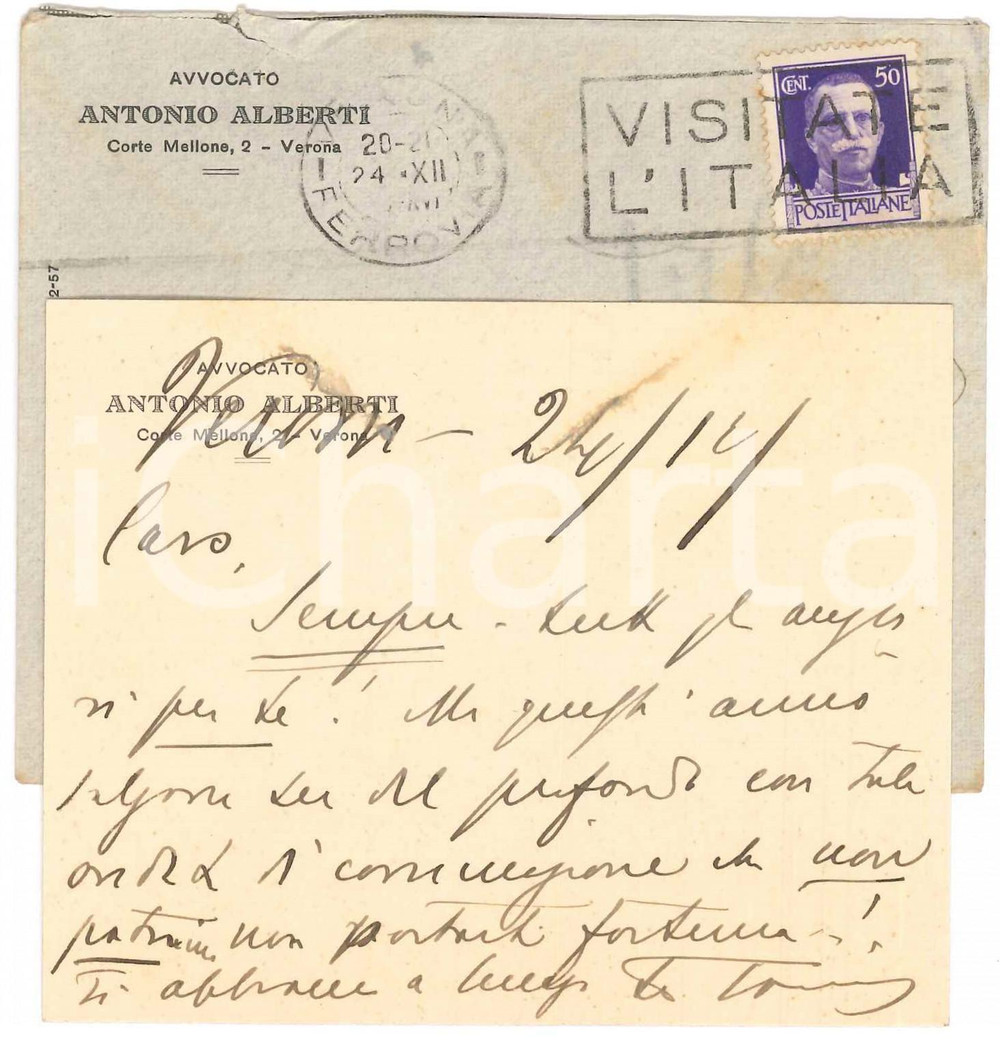 AVVOCATO
ANTONIO ALBERTI
Corte Mellone, 2 - Verona
VERONA
20-21
24 XII
FERROVIA
VISITATE
L'ITALIA
CENT. 50
POSTE ITALIANE
2-57
AVVOCATO
ANTONIO ALBERTI
Corte Mellone, 2 - Verona
Verona - 24/12/
Caro,
Sempre - tutti gli auguri
per te! Ma quest' anno
salgono su dal profondo con tale
ondata di commozione che non
potranno non portarti fortuna -!
Ti abbraccio a lungo
iCharta